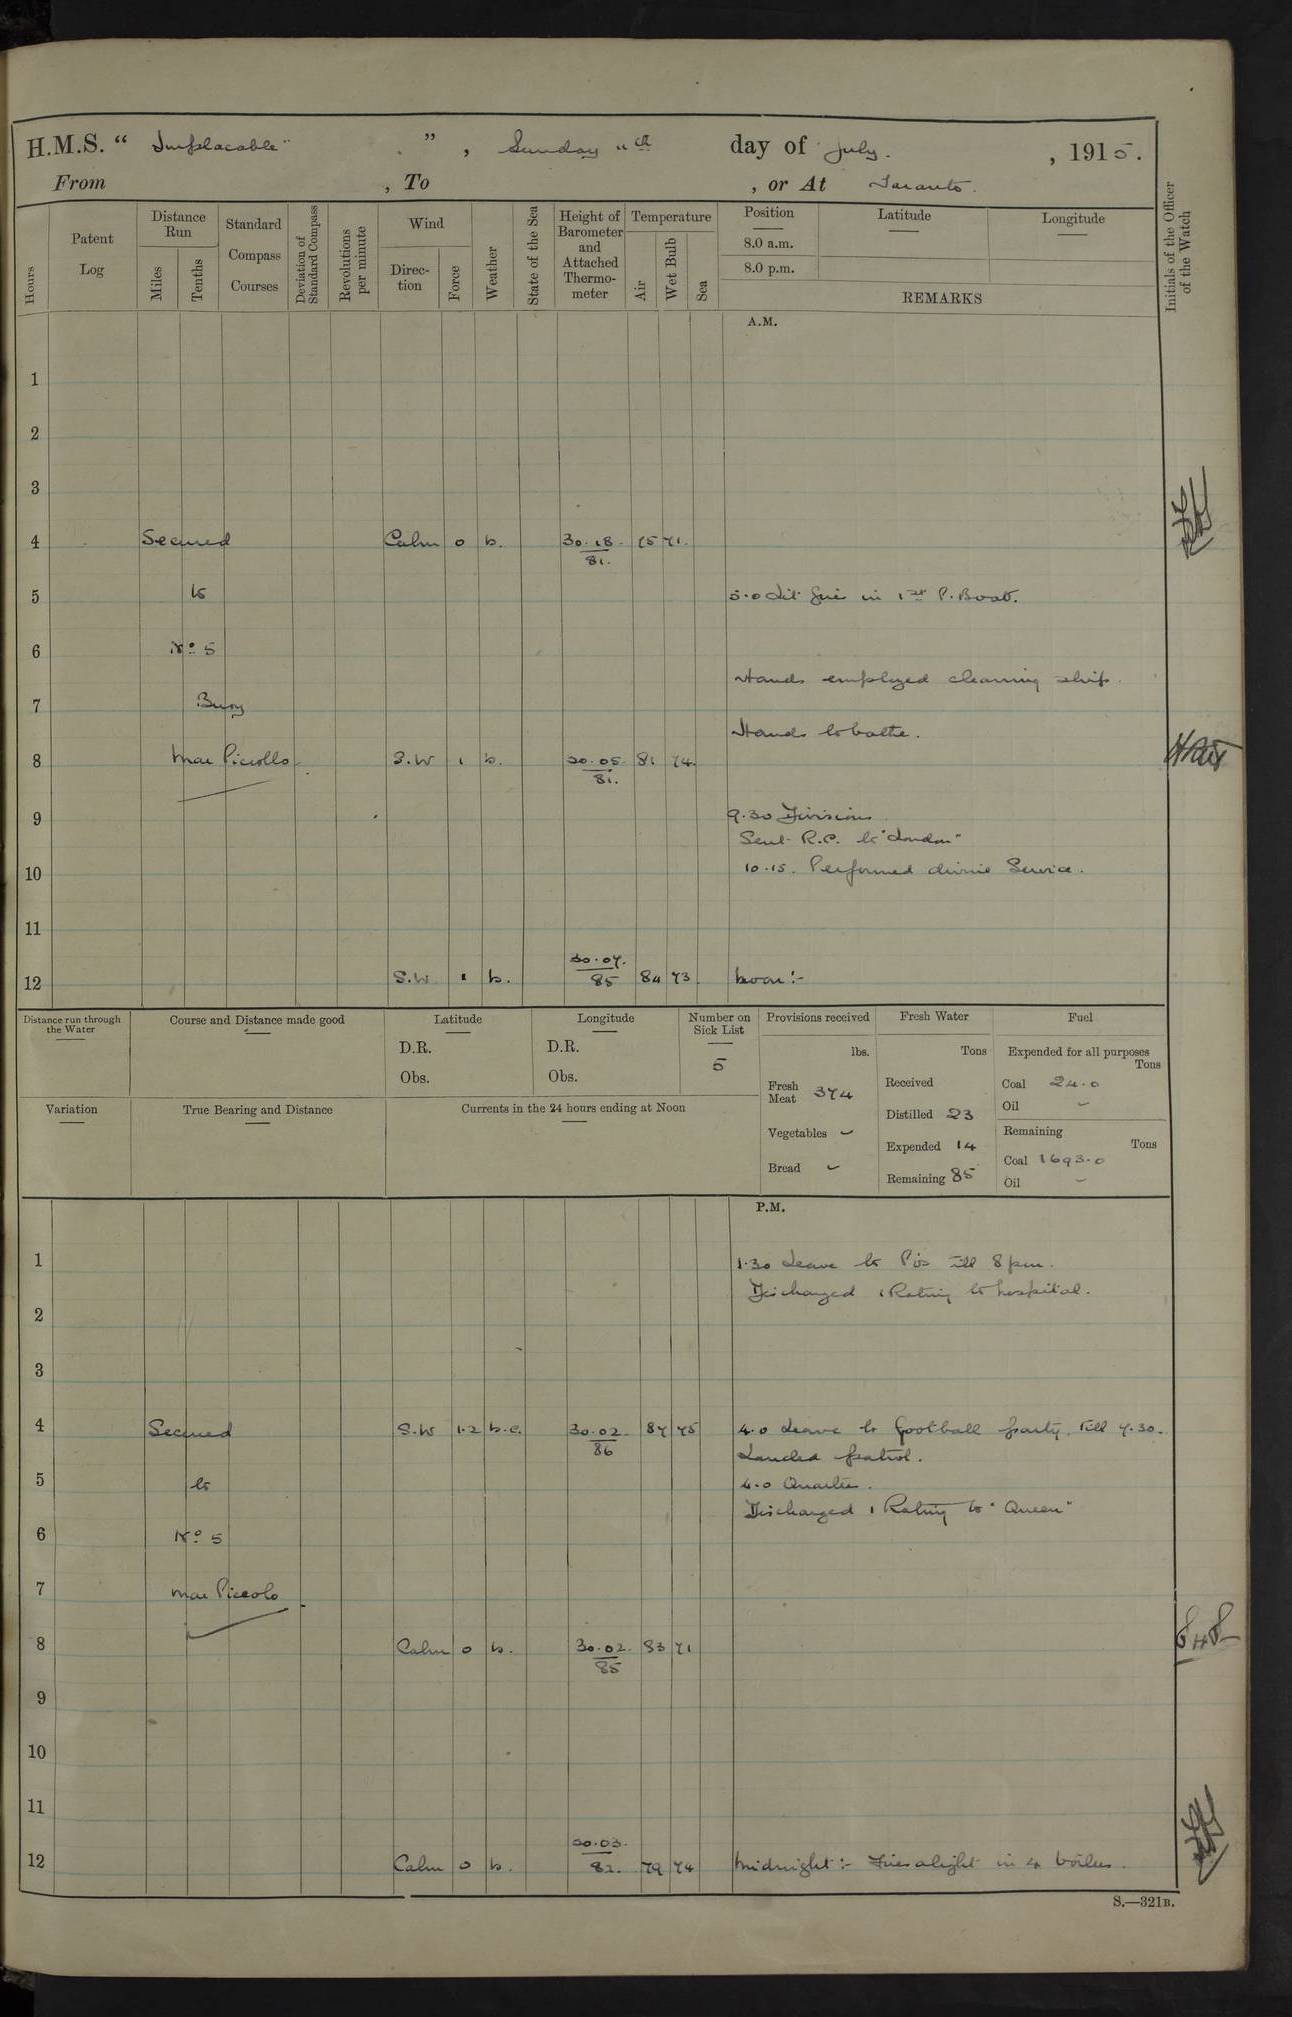 H.M.S. “ Implacable ” , Sunday 11th day of July. , 1915.
From , To , or At Taranto.
Hours
Patent Log
Distance Run
Miles
Tenths
Standard Compass Courses
Deviation of Standard Compass
Revolutions per minute
Wind
Direc-tion
Force
Weather
State of the Sea
Height of Barometer and Attached Thermo-meter
Temperature
Air
Wet Bulb
Sea
Position
8.0 a.m.
8.0 p.m.
Latitude
Longitude
REMARKS
Initials of the Officer of the Watch
A.M.
1
2
3
4 Secured Calm 0 b. 30.18 75 71.
81.
5 to 5.0 Lit fire in 1st P. Boat.
6 No 5
Hands employed cleaning ship.
7 Buoy
Hands to bathe.
8 Mar Piccollo S.W 1 b. 30.05 81 74.
81.
9 9.30 Divisions
Sent R.C. to "London"
10 10.15. Performed divine Service.
11
30.07.
12 S.W. 1 b. 85 84 73. Noon:-
Distance run through the Water
Course and Distance made good
Latitude
D.R.
Obs.
Longitude
D.R.
Obs.
Number on Sick List
5
Provisions received
lbs.
Fresh Meat 374
Vegetables -
Bread -
Fresh Water
Tons
Received
Distilled 23
Expended 14
Remaining 85
Fuel
Expended for all purposes
Tons
Coal 24.0
Oil -
Remaining
Tons
Coal 1693.0
Oil -
Variation
True Bearing and Distance
Currents in the 24 hours ending at Noon
P.M.
1 1.30 Leave to P.Os till 8pm.
Discharged 1 Rating to hospital.
2
3
4 Secured S.W 1.2 b.c. 30.02 87 75 4.0 Leave to football party. till 7.30.
86 Landed patrol.
5 to 4.0 Quarters.
Discharged 1 Rating to "Queen"
6 No 5
7 Mar Piccolo
8 Calm 0 b. 30.02. 83 71
85
9
10
11
30.03.
12 Calm 0 b. 82. 79 74 Midnight:- Fires alight in 4 boilers.
S.—321B.